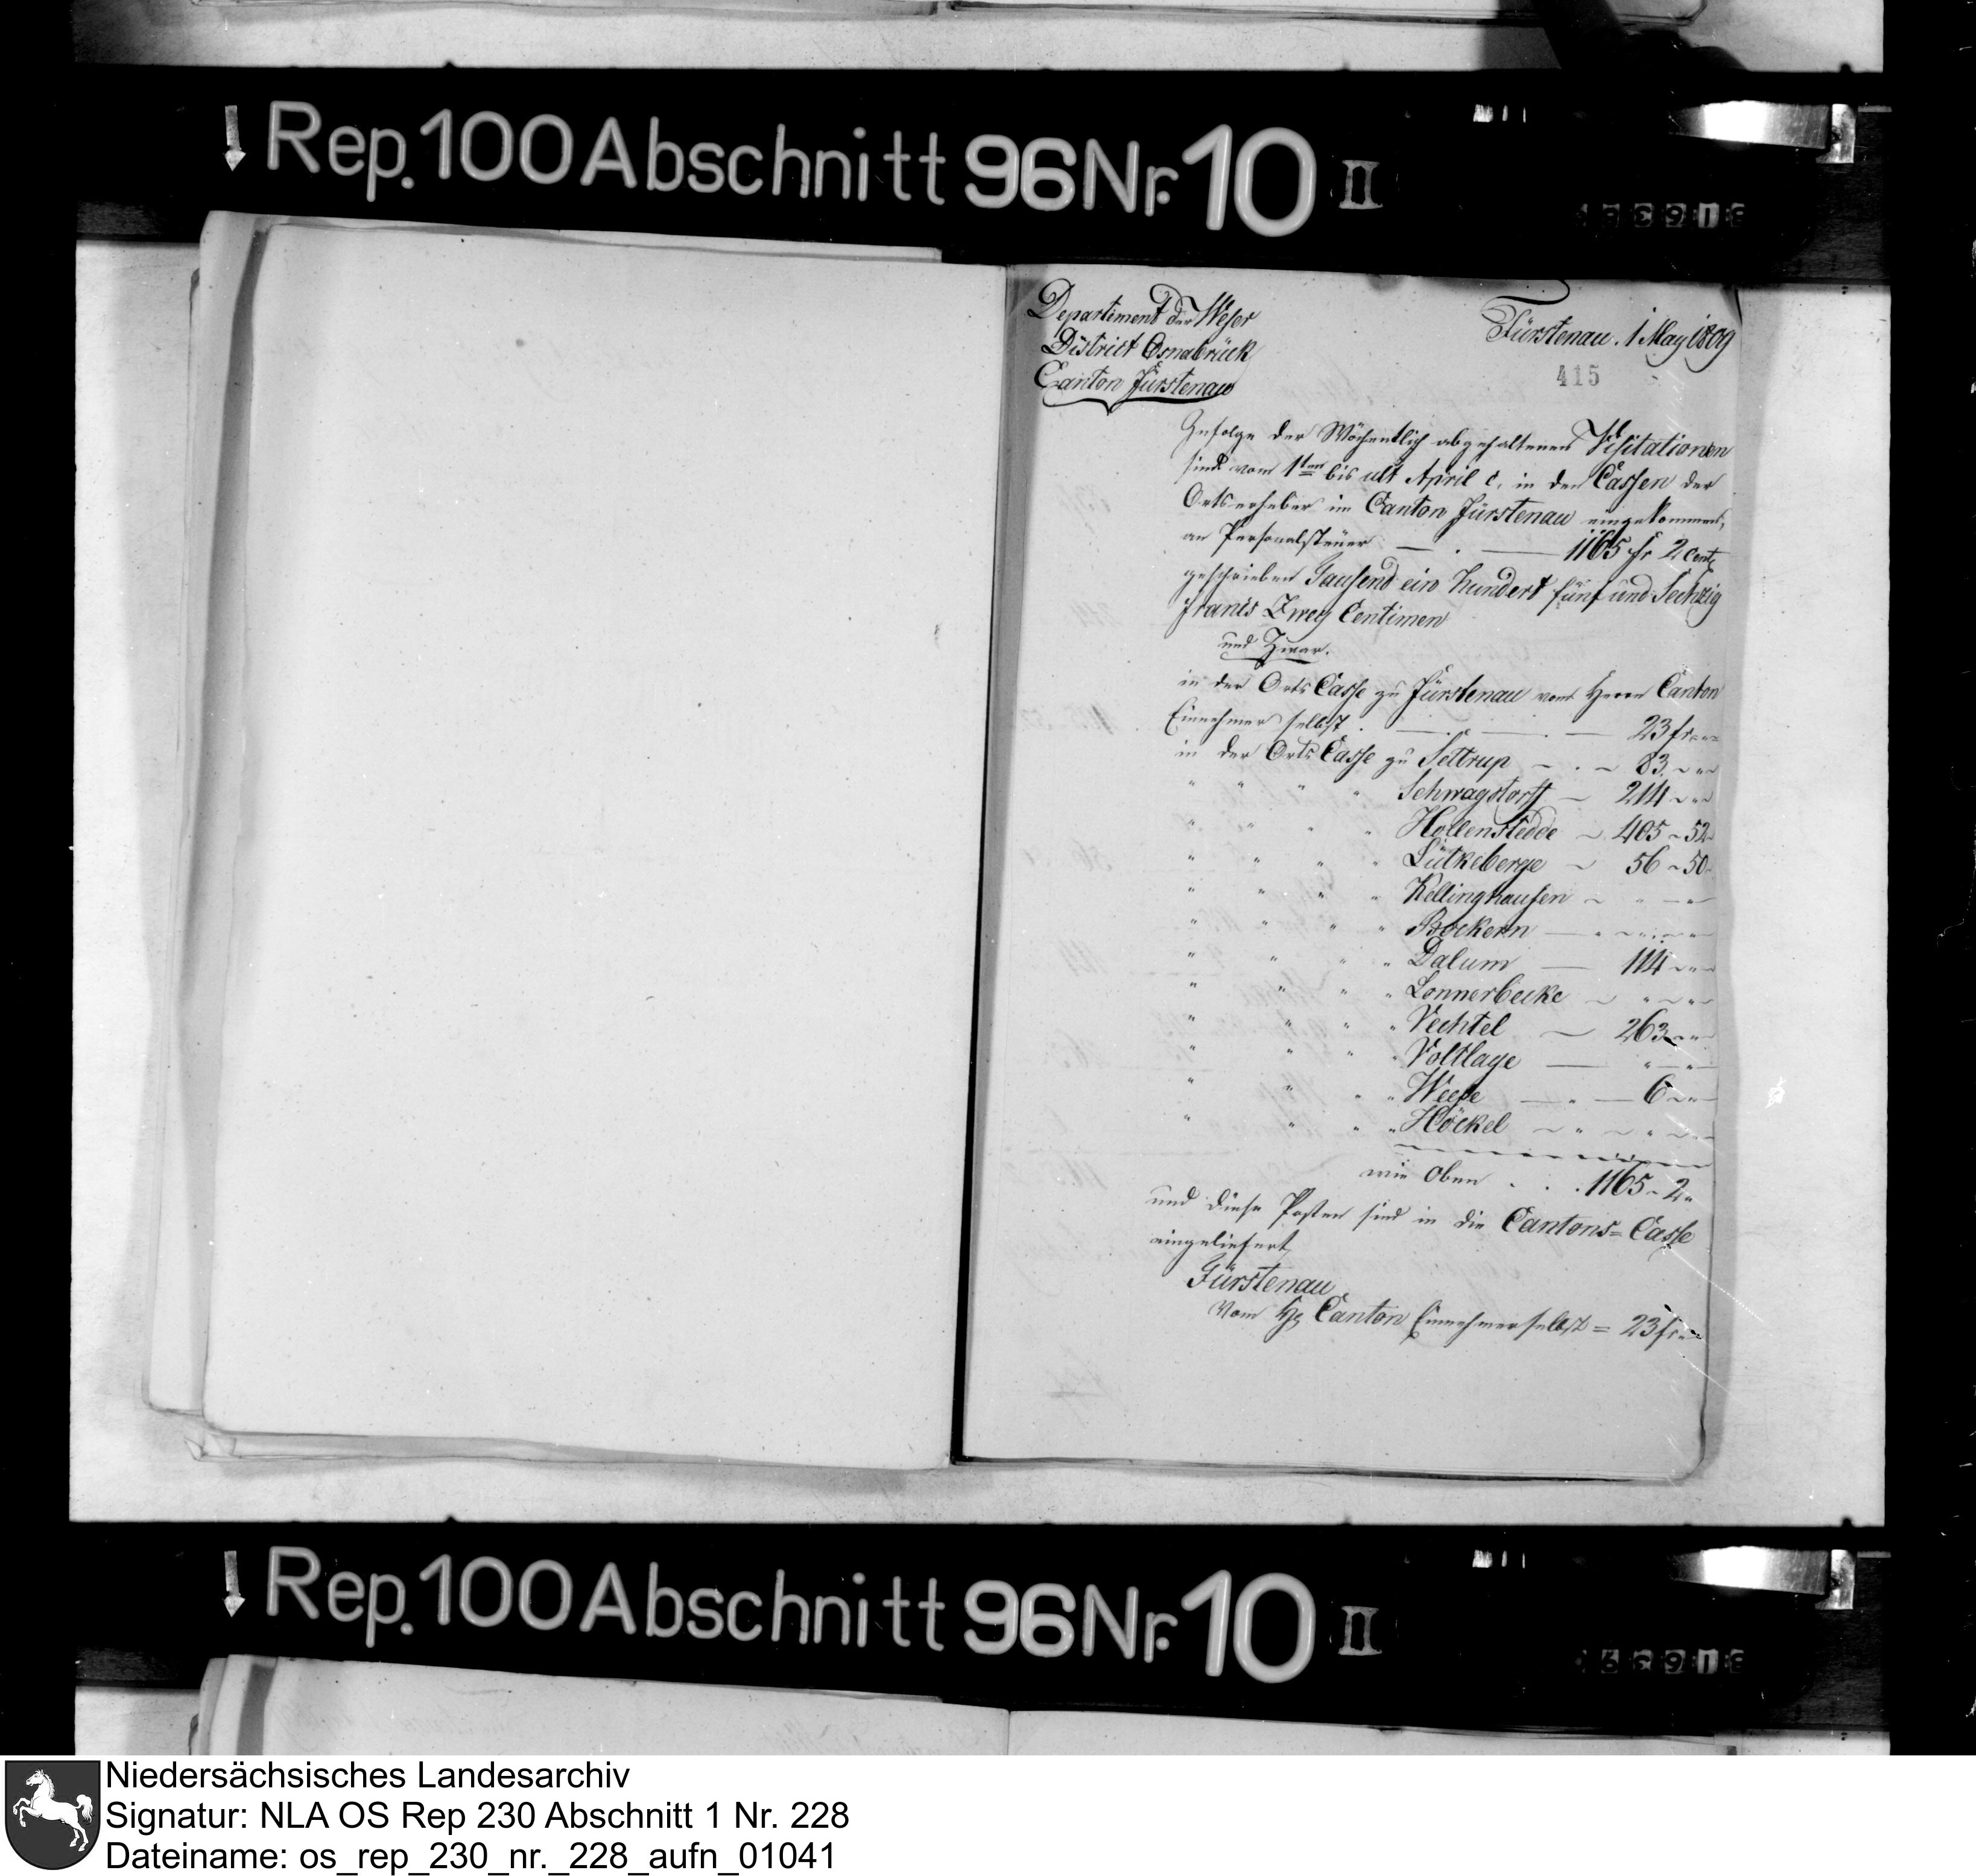 Rep. 100 Abschnitt 96 Nr. 10 II
Departement der Weser
District Osnabrück
Canton Fürstenau
Fürstenau. 1 May 1809
415
Zufolge der Wöchentlich abgehaltenen Visitationen
sind vom 1ten bis ult April c. in den Cassen der
Ortserheber im Canton Fürstenau eingekommen,
an Personalsteuer — . — 1165 fr 2 cent
geschrieben Tausend ein hundert fünf und Sechzig
francs Zwey Centimen
und Zwar.
in der Orts Casse zu Fürstenau vom Herrn Canton
Einnehmer selbst . — . — . — 23 fr
in der Orts Casse zu Settrup — . — 83
" " " " Schwagstorff — 214
" " " " Hollenstedde — 405 - 52
" " " " Lütkeberge — 56 - 50
" " " " Kellinghausen — "
" " " " Bockern — "
" " " " Dalum — 114
" " " " Lonnerbecke — "
" " " " Vechtel — 263
" " " " Voltlage — "
" " " " Weese — " — 6
" " " " Höckel — "
wie Oben . . . 1165 - 2
und diese Posten sind in die Cantons=Casse
eingeliefert
Fürstenau
Vom H Canton Einnehmer selbst = 23 fr
Rep. 100 Abschnitt 96 Nr. 10 II
Niedersächsisches Landesarchiv
Signatur: NLA OS Rep 230 Abschnitt 1 Nr. 228
Dateiname: os_rep_230_nr._228_aufn_01041